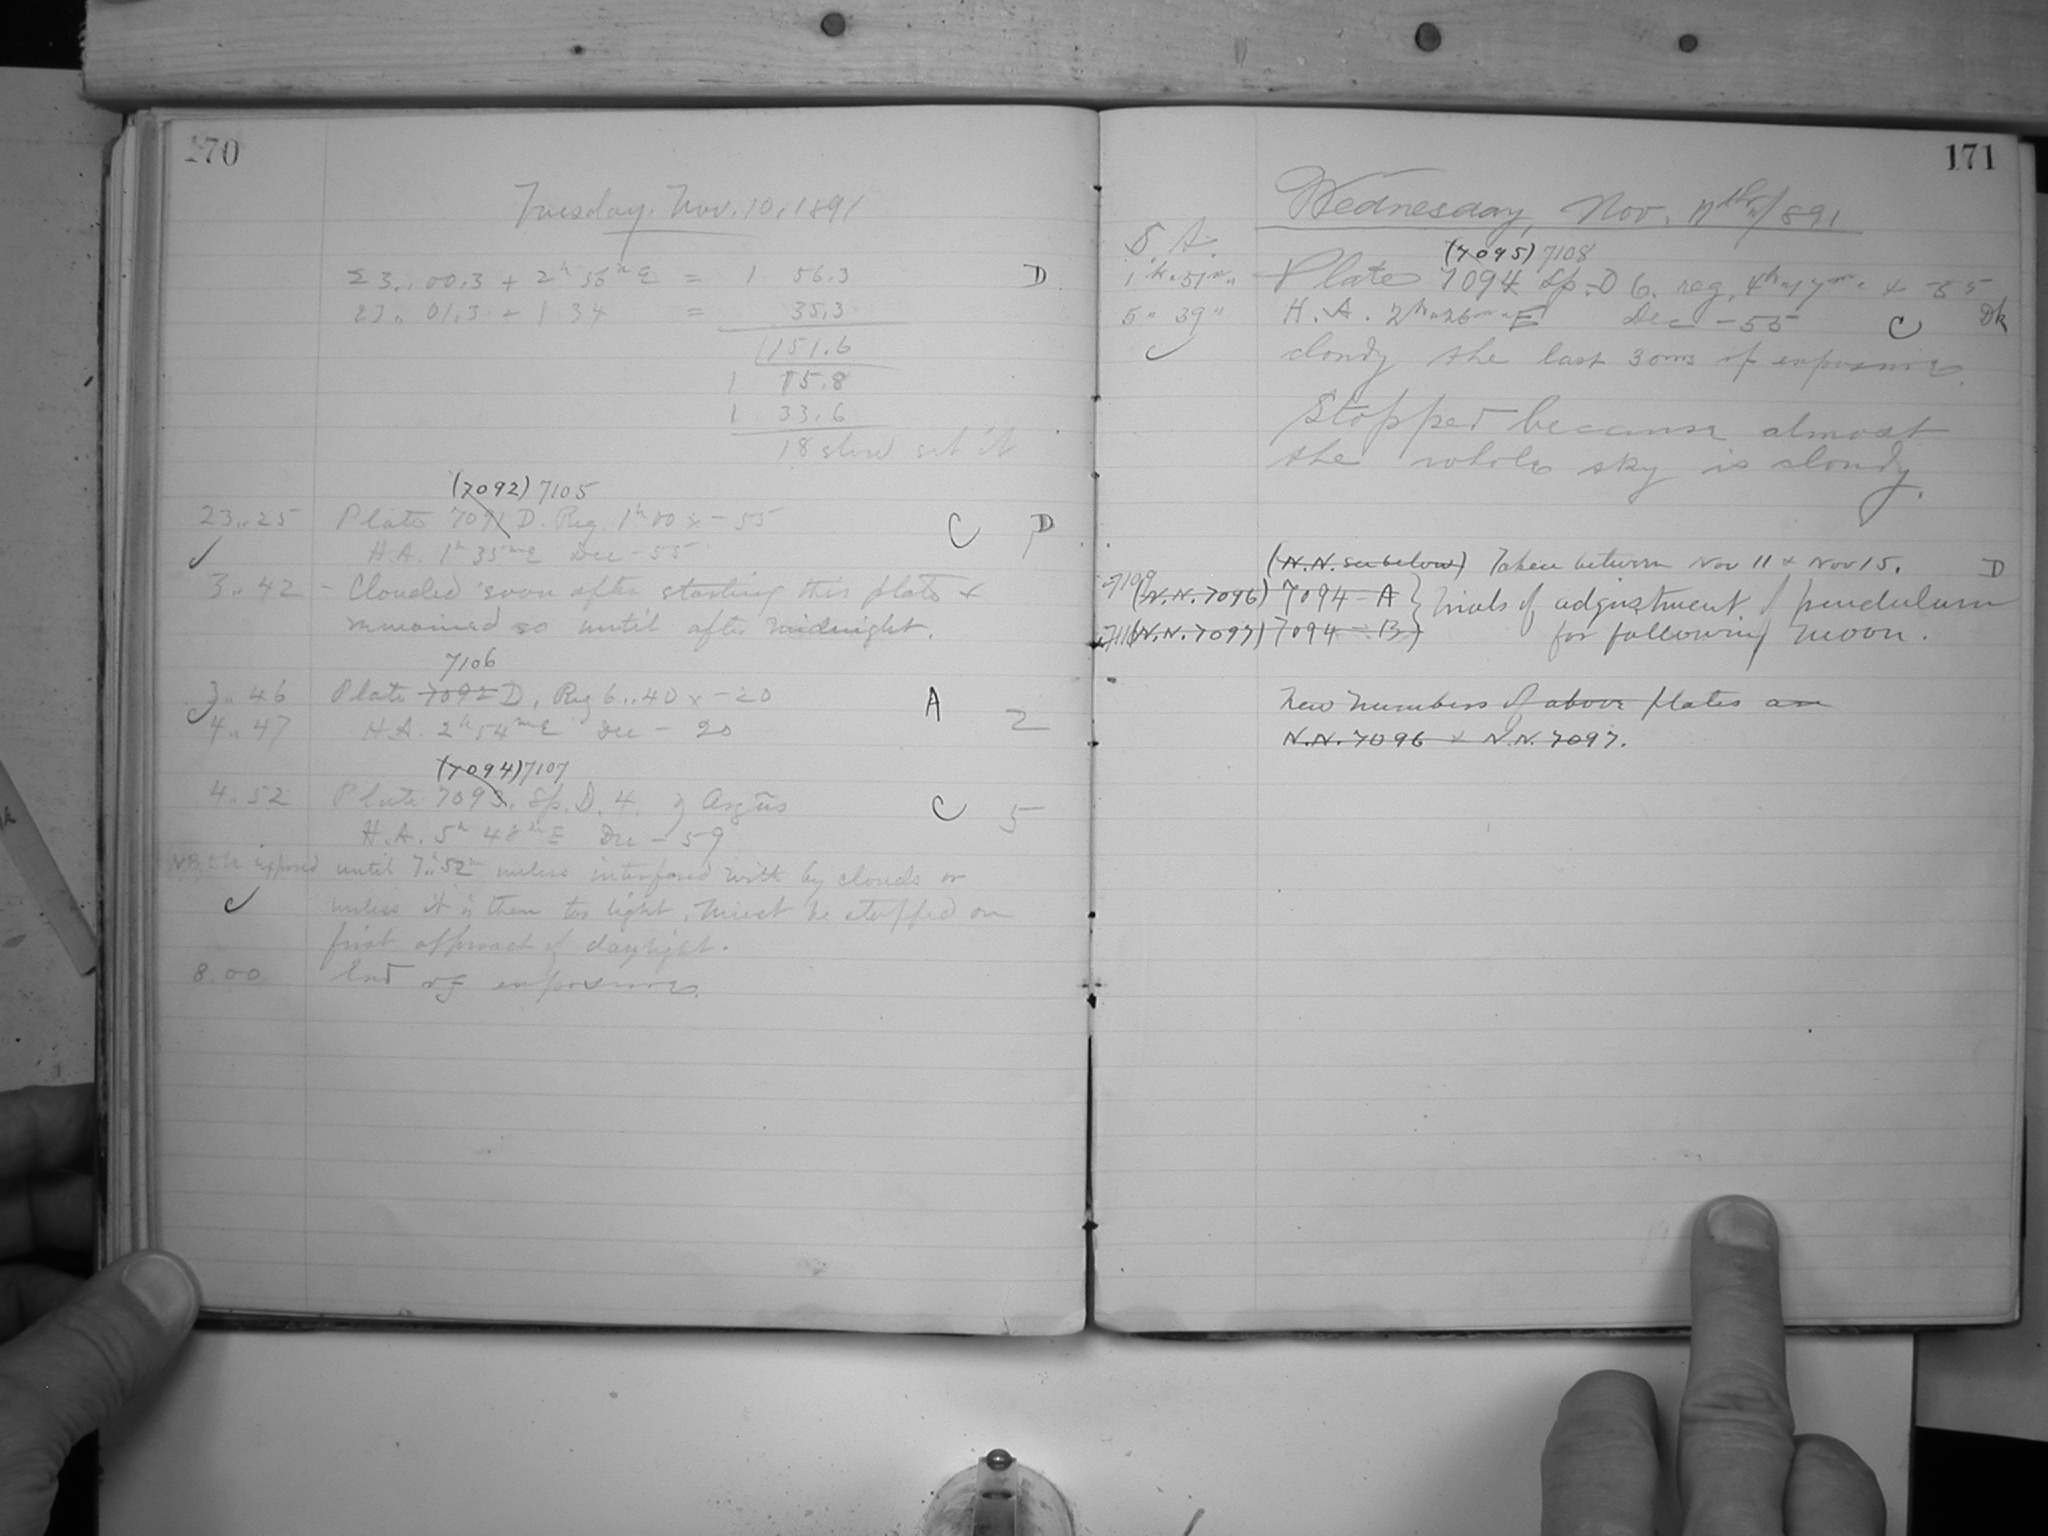 170
Tuesday, Nov. 10, 1891
23..00.3 + 2h 56m E = 1 56.3 D
23..01.3 + 1 34 = 35.3
151.6
1 15.8
1 33.6
18 slow set it
(7092) 7105
23..25 Plate 7091 D. Reg. 1h 00 x -55 C D
H.A. 1h 35m E Dec -55
3..42 - Clouded soon after starting this plate &
remained so until after midnight.
7106
3..46 Plate 7092 D, Reg 6..40 x -20 A 2
4..47 H.A. 2h 54m E Dec - 20
(7094) 7107
4..52 Plate 7093. Sp. D. 4. η Argus C 5
H.A. 5h 48m E Dec - 59
N.B. to be exposed until 7h..52m unless interfered with by clouds or
unless it is then too light, must be stopped on
first approach of daylight.
8.00 End of exposure.
171
Wednesday, Nov. 11th 1891
S. A. (7095) 7108
1h..51m.. Plate 7094 Sp. D 6. reg. 4h..19m.. x -55
5.. 39.. H. A. 2h..26m..E Dec -55 C Dk
cloudy the last 30ms of exposure.
Stopped because almost
the whole sky is cloudy.
(N.N. see below) Taken between Nov 11 & Nov 15. D
7109 (N.N. 7096) 7094 - A } Trials of adjustment of pendulum
7110 (N.N. 7097) 7094 - B } for following moon.
New numbers of above plates are
N.N. 7096 & N.N. 7097.